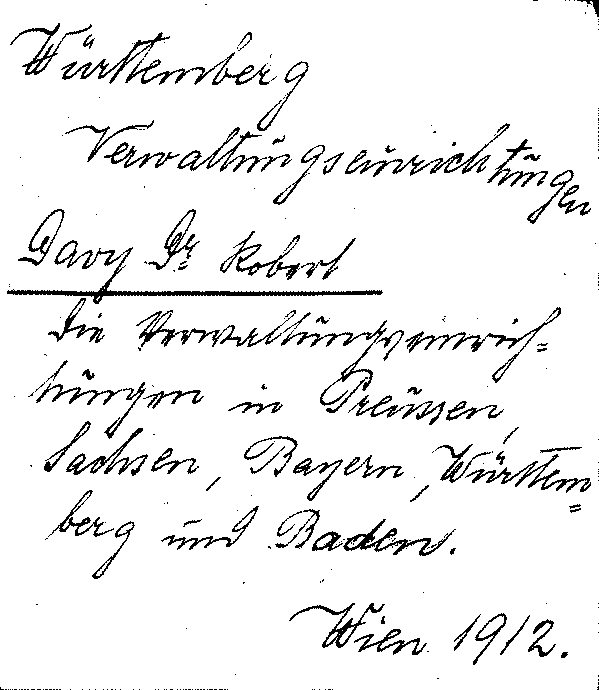 Württemberg
Verwaltungseinrichtungen
Davy Dr. Robert
Die Verwaltungseinrich=
tungen in Preussen,
Sachsen, Bayern, Württem=
berg und Baden.
Wien 1912.